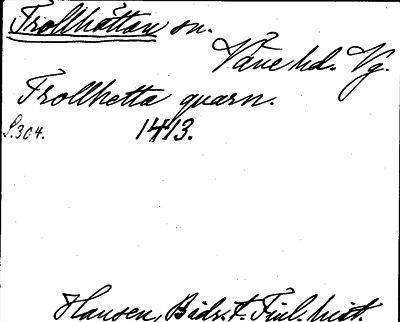 Trollhättan sn.
Väne hd. Vg.
Trollhetta quarn.
S. 304. 1413.
Hausen, Bidr. t. Finl. hist.